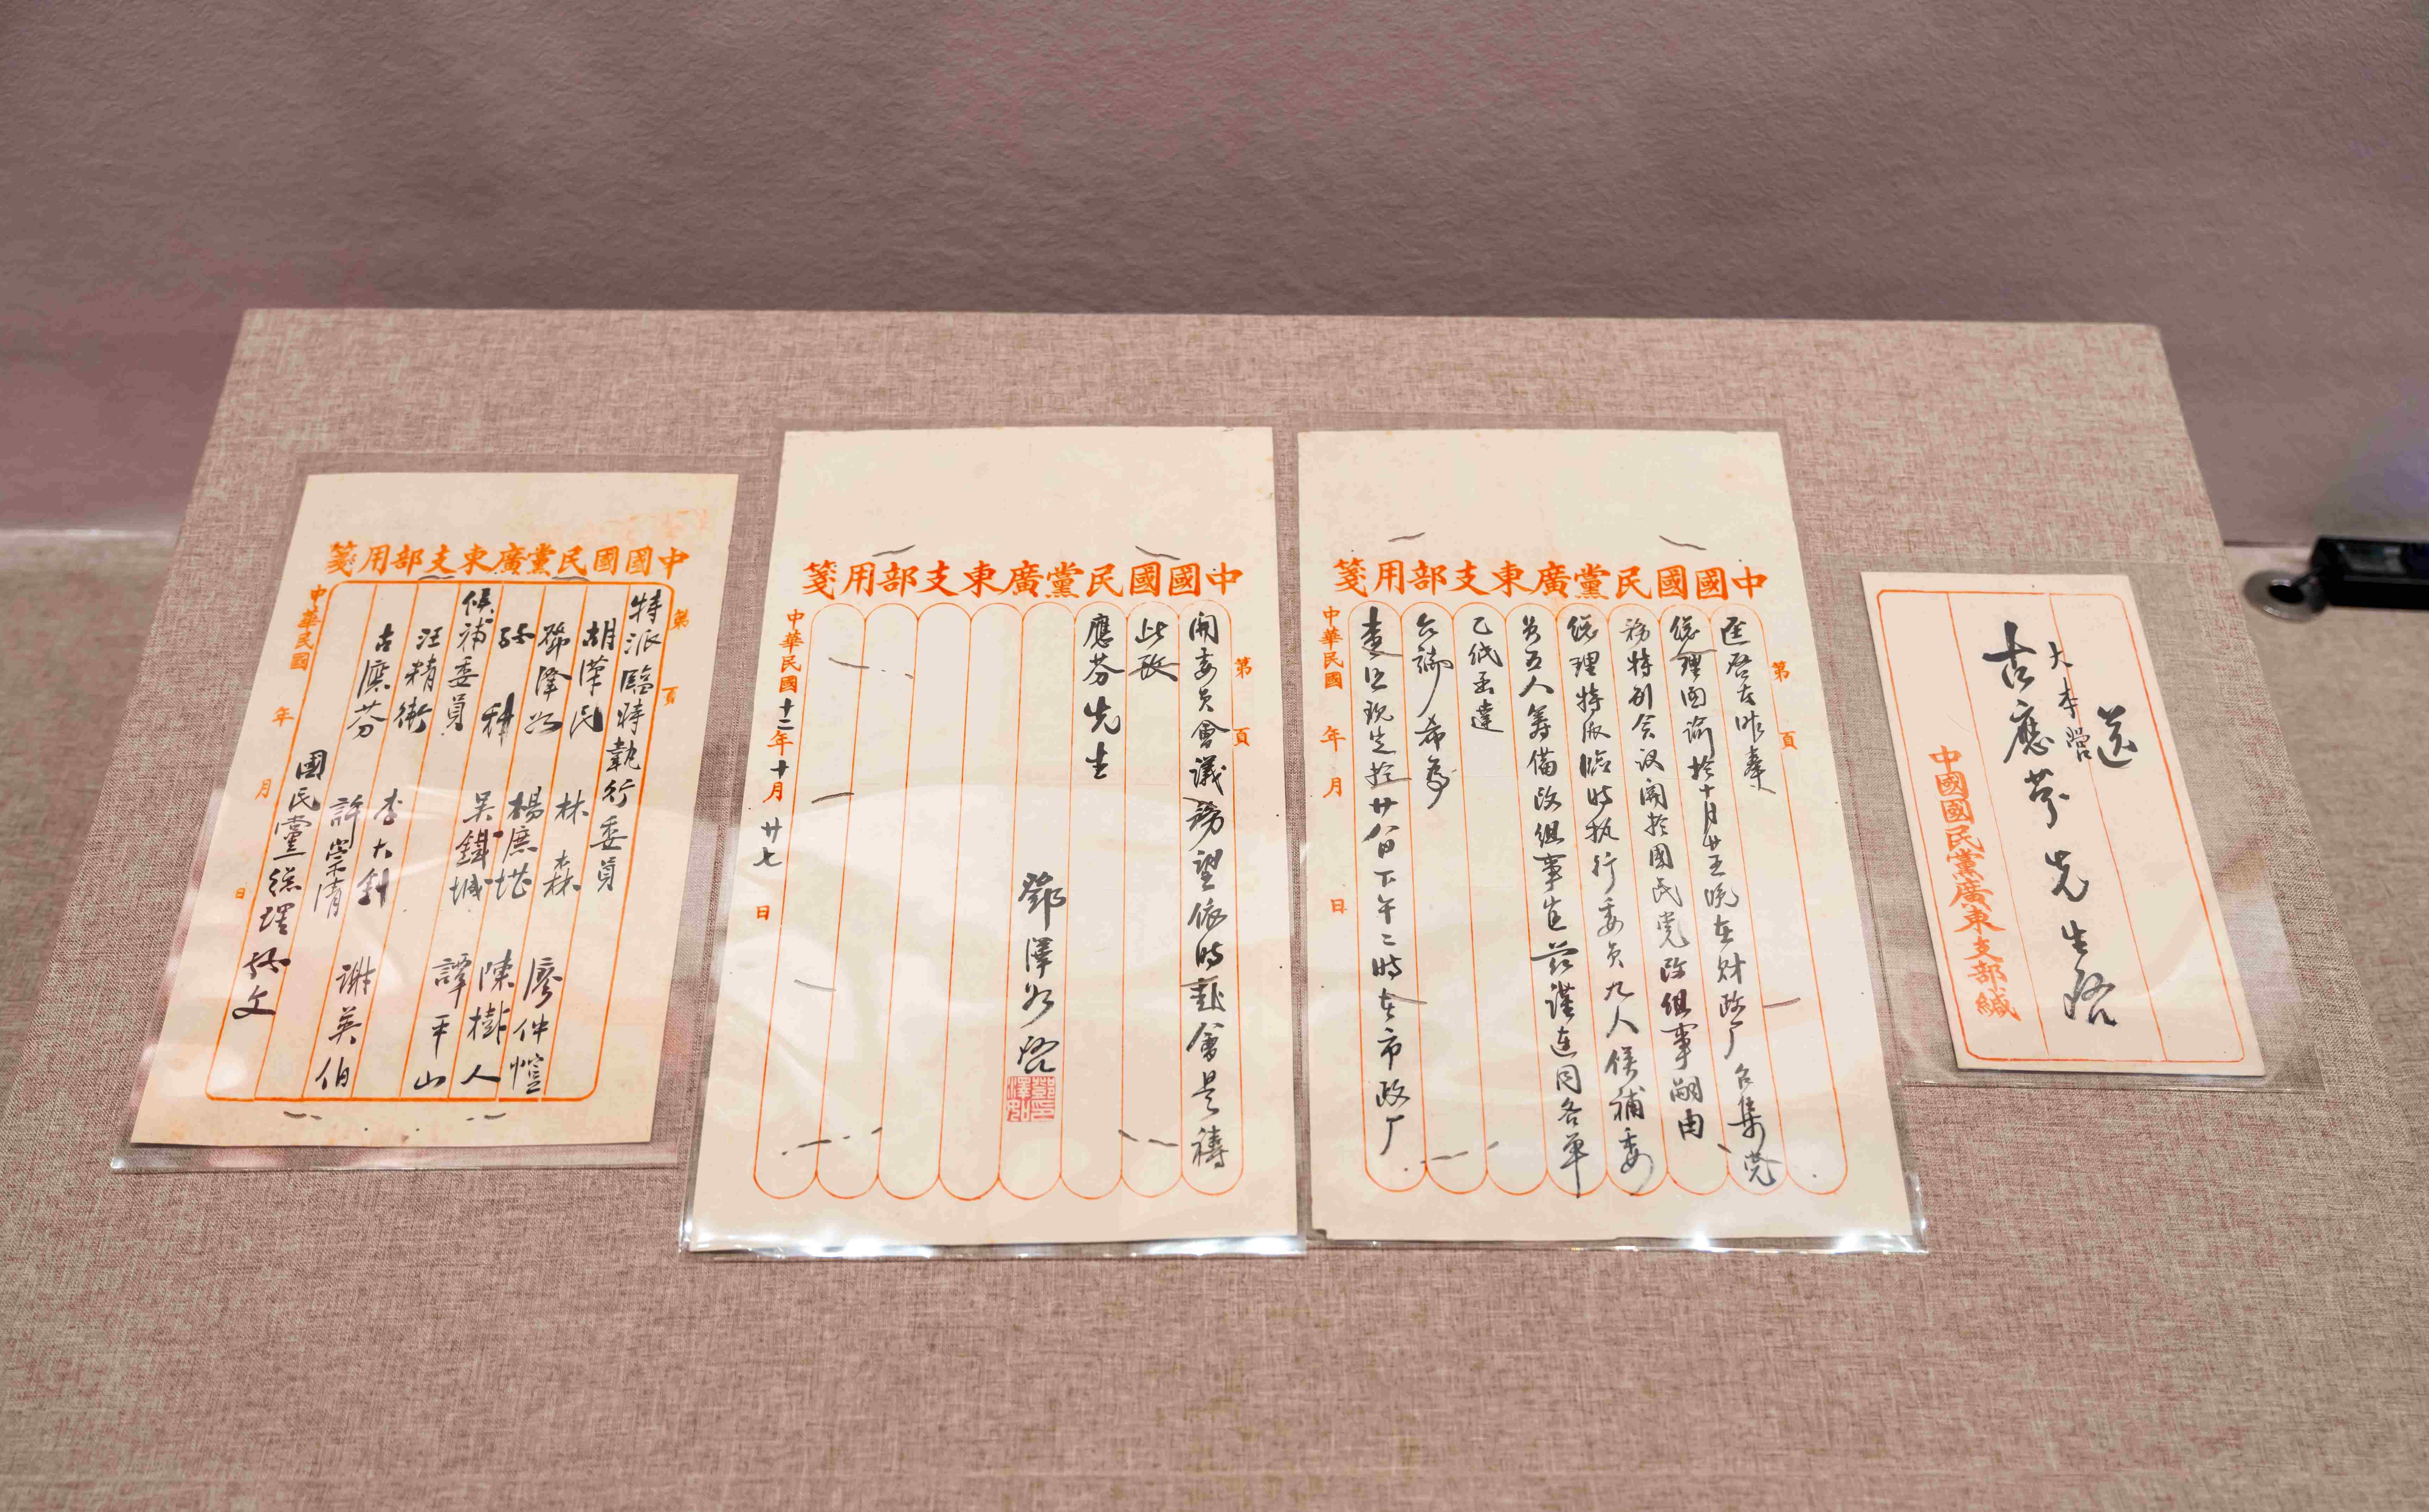 送
大本營
古應芬先生啓
中國國民黨廣東支部緘
中國國民黨廣東支部用箋
第 頁
逕啓者昨奉
總理面諭於十月廿五晚在財政厅召集党
務特別会议關於國民党改组事嗣由
總理特派臨時执行委员九人候補委
员五人筹備改组事宜茲謹連同名单
乙纸函達
台端希爲
查照现定於廿八日下午二時在市政厅
中華民國 年 月 日
中國國民黨廣東支部用箋
第 頁
開委员會議務望依時蒞會是禱
此致
應芬先生
鄧澤如啓
鄧澤如印
中華民國十二年十月廿七日
中國國民黨廣東支部用箋
第 頁
特派臨時執行委員
胡漢民 林森 廖仲愷
鄧澤如 楊庶堪 陳樹人
孫科 吳鐵城 譚平山
候補委員
汪精衛 李大釗 謝英伯
古應芬 許崇清
國民黨總理孫文
中華民國 年 月 日